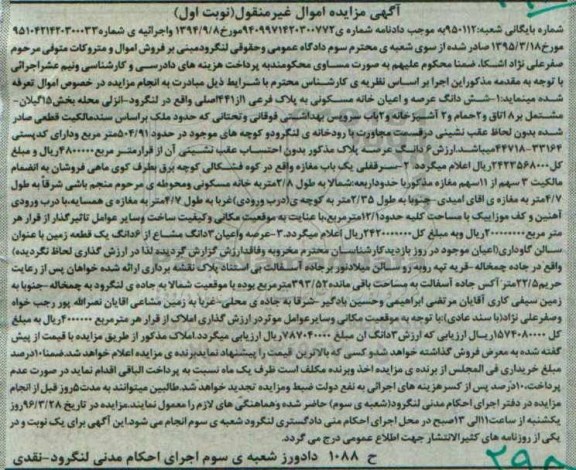 آگهی مزایده اموال غیرمنقول(نوبت اول)
شماره بایگانی شعبه:۹۵۰۱۱۲به موجب دادنامه شماره ی۹۴۰۹۹۷۱۴۲۰۳۰۰۷۷۲مورخ۱۳۹۴/۹/۸ واجرائیه ی شماره۹۵۱۰۴۲۱۴۲۰۳۰۰۰۳۳
مورخ۱۳۹۵/۳/۱۸ صادر شده از سوی شعبه ی محترم سوم دادگاه عمومی وحقوقی لنگرودمبنی بر فروش اموال و متروکات متوفی مرحوم
صفرعلی نژاد اشکا، ضمنا محکوم علیهم به صورت مساوی محکومندبه پرداخت هزینه های دادرسی و کارشناسی ونیم عشراجرائی
با توجه به مقدمه مذکوراین اجرا بر اساس نظریه ی کارشناس محترم با شرایط ذیل مبادرت به انجام مزایده در خصوص اموال تعرفه
شده مینماید:۱-شش دانگ عرصه و اعیان خانه مسکونی به پلاک فرعی ۱از۴۴۱اصلی واقع در لنگرود-انزلی محله بخش۱۵گیلان-
مشتمل بر۱۸اتاق و۲حمام و۲ آشپزخانه و۲باب سرویس بهداشتی فوقانی وتحتانی که حدود ملک براساس سندمالکیت قطعی صادر
شده بدون لحاظ عقب نشینی درقسمت مجاورت با رودخانه ی لنگرودو کوچه های موجود در حدود۵۰۴/۹۱متر مربع ودارای کدپستی
۳۳۱۶۴-۴۴۷۱۸میباشد.ارزش۶ دانگ عرصه پلاک مذکور بدون احتساب عقب نشینی آن از قرارمتر مربع۴۸۰۰۰۰۰ریال و مبلغ
کل۲۴۲۳۵۶۸۰۰۰ریال اعلام میگردد.۲-سرقفلی یک باب مغازه واقع در کوه فشکالی کوچه برق بطرف کوی ماهی فروشان به انضمام
مالکیت ۳ سهم از ۱۱سهم مغازه مذکوربا حدوداربعه:شمالا به طول ۲/۸متربه خانه مسکونی ومحوطه ی مرحوم منجم باشی شرقاً به طول
۴/۷متر به مغازه ی اقای امیدی-جنوبا به طول ۲/۳۵متر به کوچه ی(درب ورودی)غربا به طول ۴/۷متر به مغازه ی همسایه.با درب ورودی
آهنین و کف موزاییک با مساحت کلیه حدود۱۲/۱مترمربع.با عنایت به موقعیت مکانی وکیفیت ساخت وسایر عوامل تاثیرگذار از قرار هر
متر مربع۲۰۰۰۰۰۰۰ریال وبه مبلغ کل۲۴۲۰۰۰۰۰۰ریال اعلام میگردد.۳-عرصه واعیان۳دانگ مشاع از ۶دانگ یک قطعه زمین با عنوان
سالن گاوداری(اعیان موجود در روز بازدیدکارشناسان محترم مخروبه وفاقدارزش گزارش گردیده لذا در ارزش گذاری لحاظ نگردیده)
واقع در جاده چمخاله-قریه تپه روبه رو سالن میلادنور برجاده آسفالت بی استناد پلاک نقشه برداری ارائه شده خواهان پس از رعایت
حریم۲۲/۵متر آکس جاده آسفالت به مساحت باقی مانده۳۹۳/۵۲مترمربع بوده با موقعیت شمالا به جاده ی لنگرود به چمخاله-جنوبا به
زمین سیفی کاری آقایان مرتضی ابراهیمی وحسین یادگیر-شرقا به جاده ی محلی-غربا به زمین مشاعی اقایان نصراله پور رجب خواه
وصفرعلی نژاد(با سند عادی).با توجه به موقعیت مکانی وسایرعوامل موثردر ارزش گذاری املاک از قرار هر مترمربع ۴۰۰۰۰۰۰ ریال به مبلغ
کل ۱۵۷۴۰۸۰۰۰۰ریال ارزیابی که ارزش۳دانگ ان مبلغ ۷۸۷۰۴۰۰۰۰ریال ارزیابی میگردد.املاک مذکور از طریق مزایده با قیمت از پیش
گفته شده به معرض فروش گذاشته خواهد شدو کسی که بالاترین قیمت را پیشنهاد نمایدبرنده ی مزایده اعلام خواهد شد.ضمنا۱۰درصد
مبلغ خریداری فی المجلس از برنده ی مزایده اخذ وبرنده مکلف است ظرف یک ماه نسبت به پرداخت الباقی اقدام نماید در صورت عدم
پرداخت،۱۰درصد پس از کسرهزینه های اجرائی به نفع دولت ضبط ومزایده تجدید خواهد شد.طالبین میتوانند به مدت۵روز قبل از انجام
مزایده در دفتر اجرای احکام مدنی لنگرود(شعبه ی سوم) حاضر شده وهماهنگی های لازم را معمول نمایند.مزایده در تاریخ ۹۶/۳/۲۸روز
یکشنبه از ساعت۱۱الی ۱۳صبح در محل اجرای احکام منی دادگستری لنگرود شعبه ی سوم انجام می شود.این آگهی برای یک نوبت و در
یکی از روزنامه های کثیرالانتشار جهت اطلاع عمومی درج می گردد.
ح ۱۰۸۸ دادورز شعبه ی سوم اجرای احکام مدنی لنگرود-نقدی